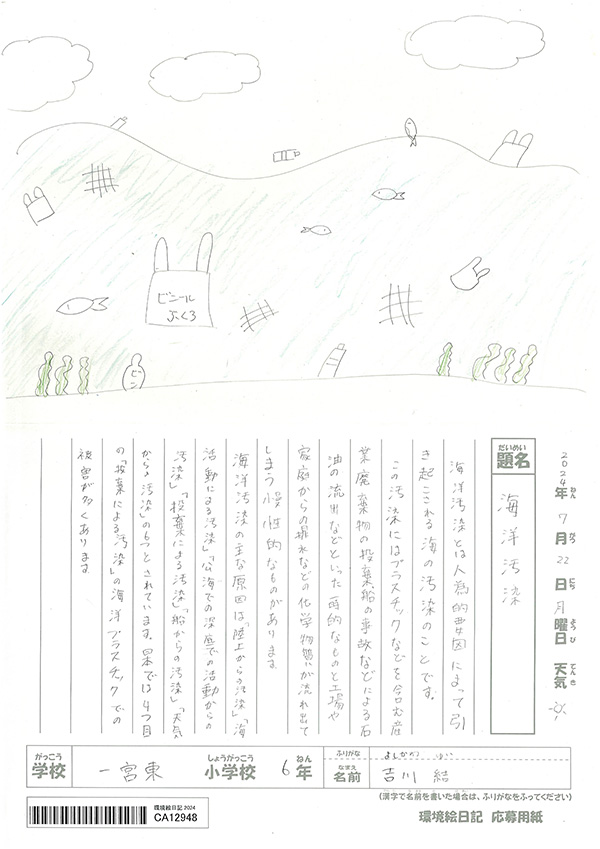 ビニール
ぶくろ
ビン
2024年 7月 22日 月曜日 天気
ねん がつ にち ようび てんき
だいめい
題名
海洋汚染
海洋汚染とは人為的要因によって引
き起こされる海の汚染のことです。
この汚染にはプラスチックなどを含む産
業廃棄物の投棄、船の事故などによる石
油の流出などといった一時的なものと工場や
家庭からの排水などの化学物質が流れ出て
しまう慢性的なものがあります
海洋汚染の主な原因は「陸上からの汚染」「海
活動による汚染」「公海での深底での活動からの
汚染」「投棄による汚染」「船からの汚染」「天気
からの汚染」の6つとされています。日本では4つ目
の「投棄による汚染」の海洋プラスチックでの
被害が多くあります
がっこう
学校
一宮東
しょうがっこう
小学校
6年
ねん
ふりがな
よしかわ ゆい
なまえ
名前
吉川 結
(漢字で名前を書いた場合は、ふりがなをふってください)
環境絵日記 2024
CA12948
環境絵日記 応募用紙